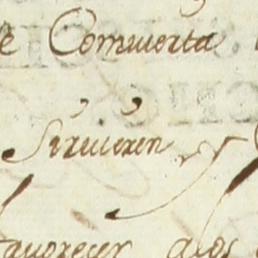 e Comuierta
Siruieren y
fauorecer a los